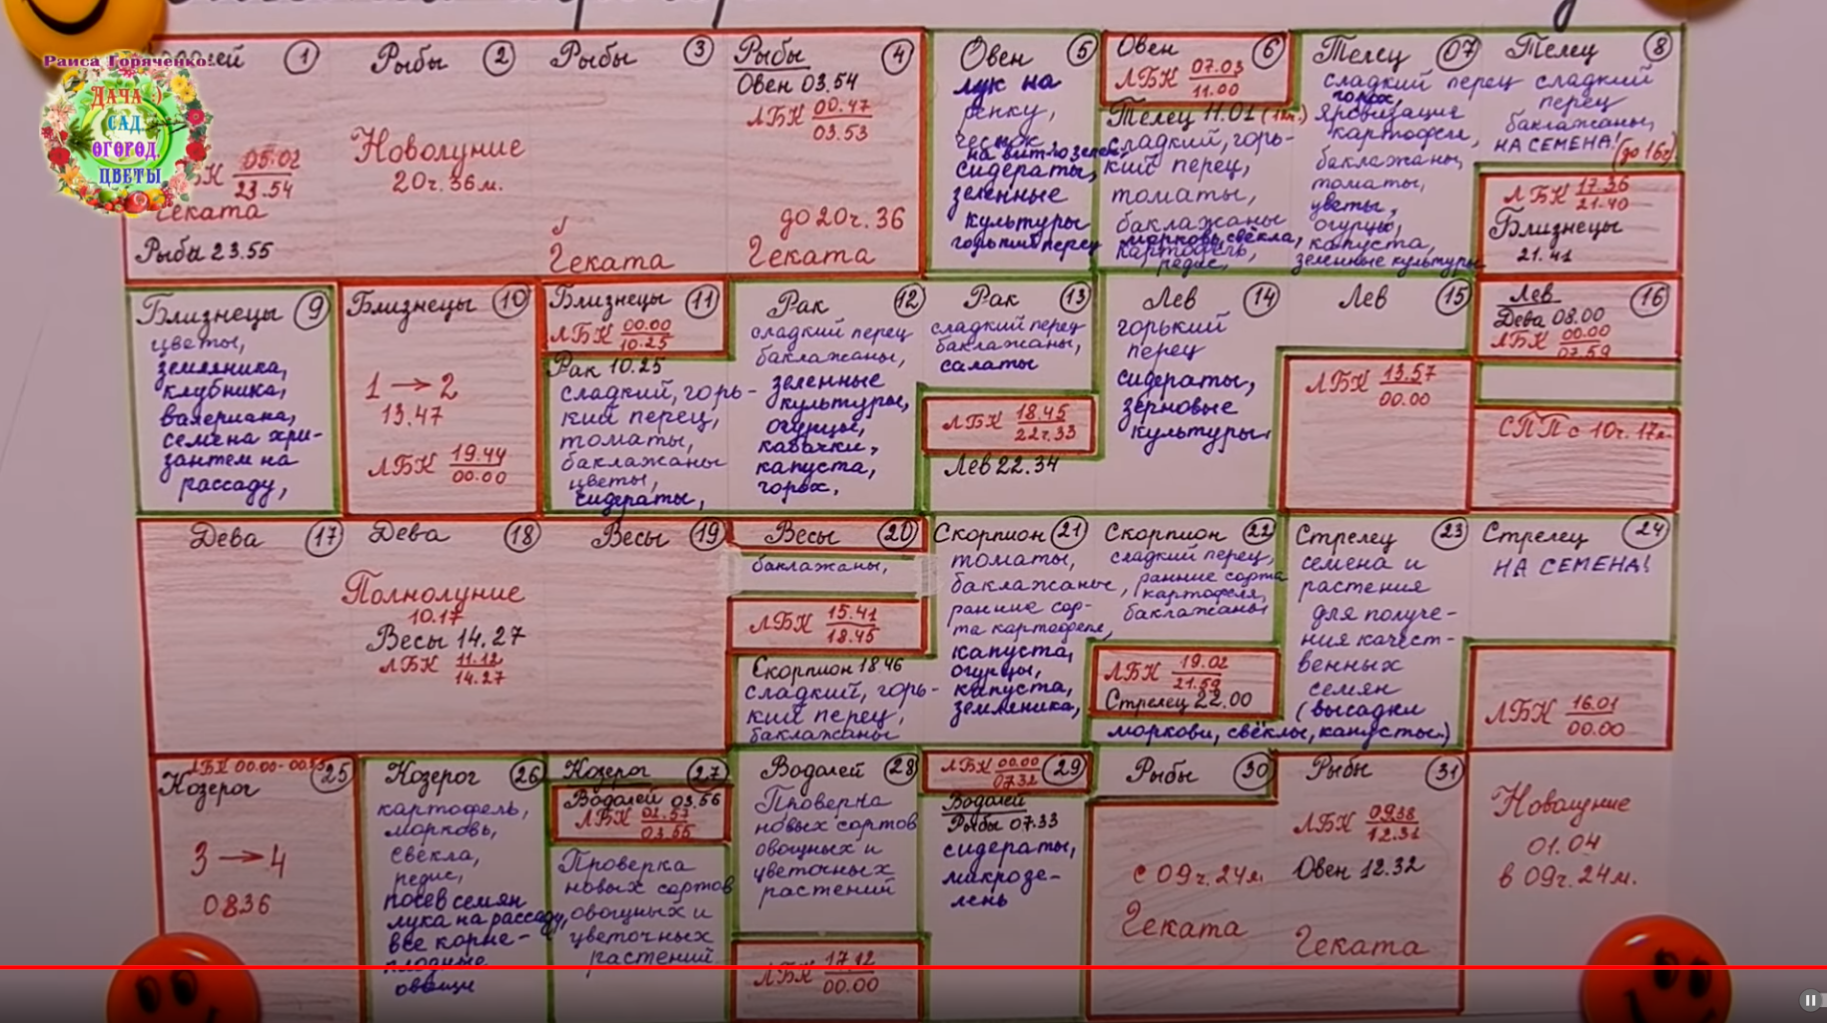 Раиса Горяченко.
Дача :)
САД
ОГОРОД,
ЦВЕТЫ
1
05.02
23.54
Геката
Рыбы 23.55
Рыбы 2
Новолуние
20ч. 36м.
Рыбы 3
Геката
Рыбы 4
Овен 03.54
ЛБК 00.47
03.53
до 20ч. 36
Геката
Овен 5
лук на
репку,
чеснок
на вит-ю зелень,
сидераты,
зеленные
культуры
горький перец
Овен 6
ЛБК 07.03
11.00
Телец 11.01 (12ч.)
сладкий, горь-
кий перец,
томаты,
баклажаны
морковь, свёкла,
картофель,
редис,
Телец 07
сладкий перец
горох,
Яровизация
картофеля,
баклажаны,
томаты,
цветы,
огурцы,
капуста,
зеленные культуры
Телец 8
сладкий
перец
баклажаны,
НА СЕМЕНА!
(до 16ч)
ЛБК 17.36
21.40
Близнецы
21.41
Близнецы 9
цветы,
земляника,
клубника,
валериана,
семена хри-
зантем на
рассаду,
Близнецы 10
1 → 2
13.47
ЛБК 19.44
00.00
Близнецы 11
ЛБК 00.00
10.25
Рак 10.25
сладкий, горь-
кий перец,
томаты,
баклажаны
цветы,
сидераты,
Рак 12
сладкий перец
баклажаны,
зеленные
культуры,
огурцы,
кабачки,
капуста,
горох,
Рак 13
сладкий перец
баклажаны,
салаты
ЛБК 18.45
22ч.33
Лев 22.34
Лев 14
горький
перец
сидераты,
зерновые
культуры,
Лев 15
ЛБК 13.57
00.00
Лев 16
Дева 08.00
ЛБК 00.00
07.59
СПП с 10ч. 17м.
Дева 17
Дева 18
Полнолуние
10.17
Весы 14.27
ЛБК 11.12
14.27
Весы 19
Весы 20
баклажаны,
ЛБК 15.41
18.45
Скорпион 18 46
сладкий, горь-
кий перец,
баклажаны
Скорпион 21
томаты,
баклажаны,
ранние сор-
та картофеля,
капуста,
огурцы,
капуста,
земляника,
Скорпион 22
сладкий перец,
ранние сорта
картофеля,
баклажаны
ЛБК 19.02
21.59
Стрелец 22.00
Стрелец 23
семена и
растения
для получе-
ния качест-
венных
семян
(высадки
моркови, свёклы, капусты)
Стрелец 24
НА СЕМЕНА!
ЛБК 16.01
00.00
25
Козерог
3 → 4
08 36
Козерог 26
картофель,
морковь,
свёкла,
редис,
посев семян
лука на рассаду,
все корне-
плодные
овощи
Козерог 27
Водолей 03.56
ЛБК 01.57
03.55
Проверка
новых сортов
овощных и
цветочных
растений
Водолей 28
Проверка
новых сортов
овощных и
цветочных
растений
ЛБК 17.12
00.00
ЛБК 00.00 29
07.32
Водолей
Рыбы 07.33
сидераты,
микрозе-
лень
Рыбы 30
с 09ч. 24м.
Геката
Рыбы 31
ЛБК 09.38
12.31
Овен 12.32
Геката
Новолуние
01.04
в 09ч. 24м.